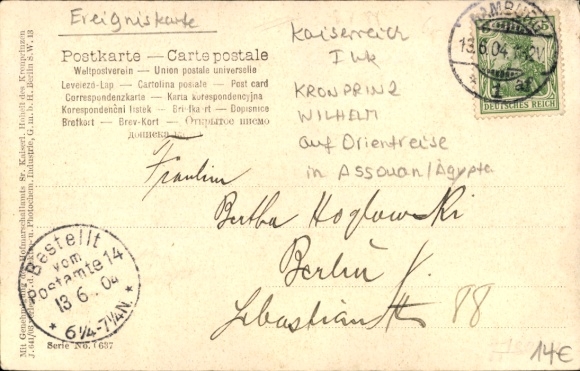 Ereigniskarte
Postkarte — Carte postale
Weltpostverein — Union postale universelle
Levelező-Lap — Cartolina postale — Post card
Correspondenzkarte — Karta korespondencyjna
Korespondenční lístek — Dopisnice
Brefkort — Brev-Kort — Открытое писмо
Kaiserreich
I WK
KRONPRINZ
WILHELM
auf Orientreise
in Assouan/Ägypten
HAMBURG
13.6.04
1
DEUTSCHES REICH
Fräulein
Bertha Hoglowski
Berlin
Sebastianstr 88
Bestellt
vom
Postamte 14
13 6. 04
* 6¼-7¼N. *
Mit Genehmigung des Hofmarschallamts Sr. Kaiserl. Hoheit des Kronprinzen
Photochem. Industrie, G. m. b. H., Berlin S.W. 13
Serie No. 1637
14€